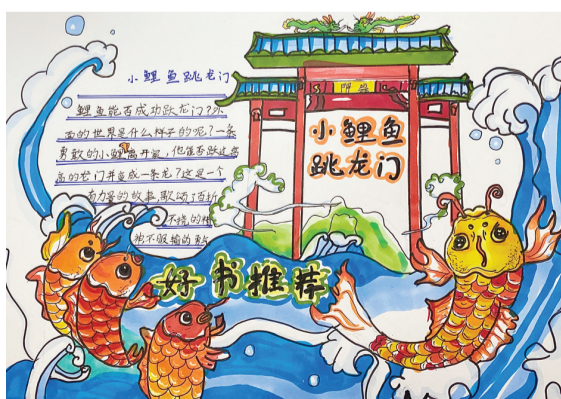 小鲤鱼跳龙门
鲤鱼能否成功跃龙门？外
面的世界是什么样子的呢？一条
勇敢的小鲤离开鱼，他能否跃过高
高的龙门并变成一条龙？这是一个
有力量的故事，歌颂了百折
不挠的精
神不服输的勇
小鲤鱼
跳龙门
好书推荐